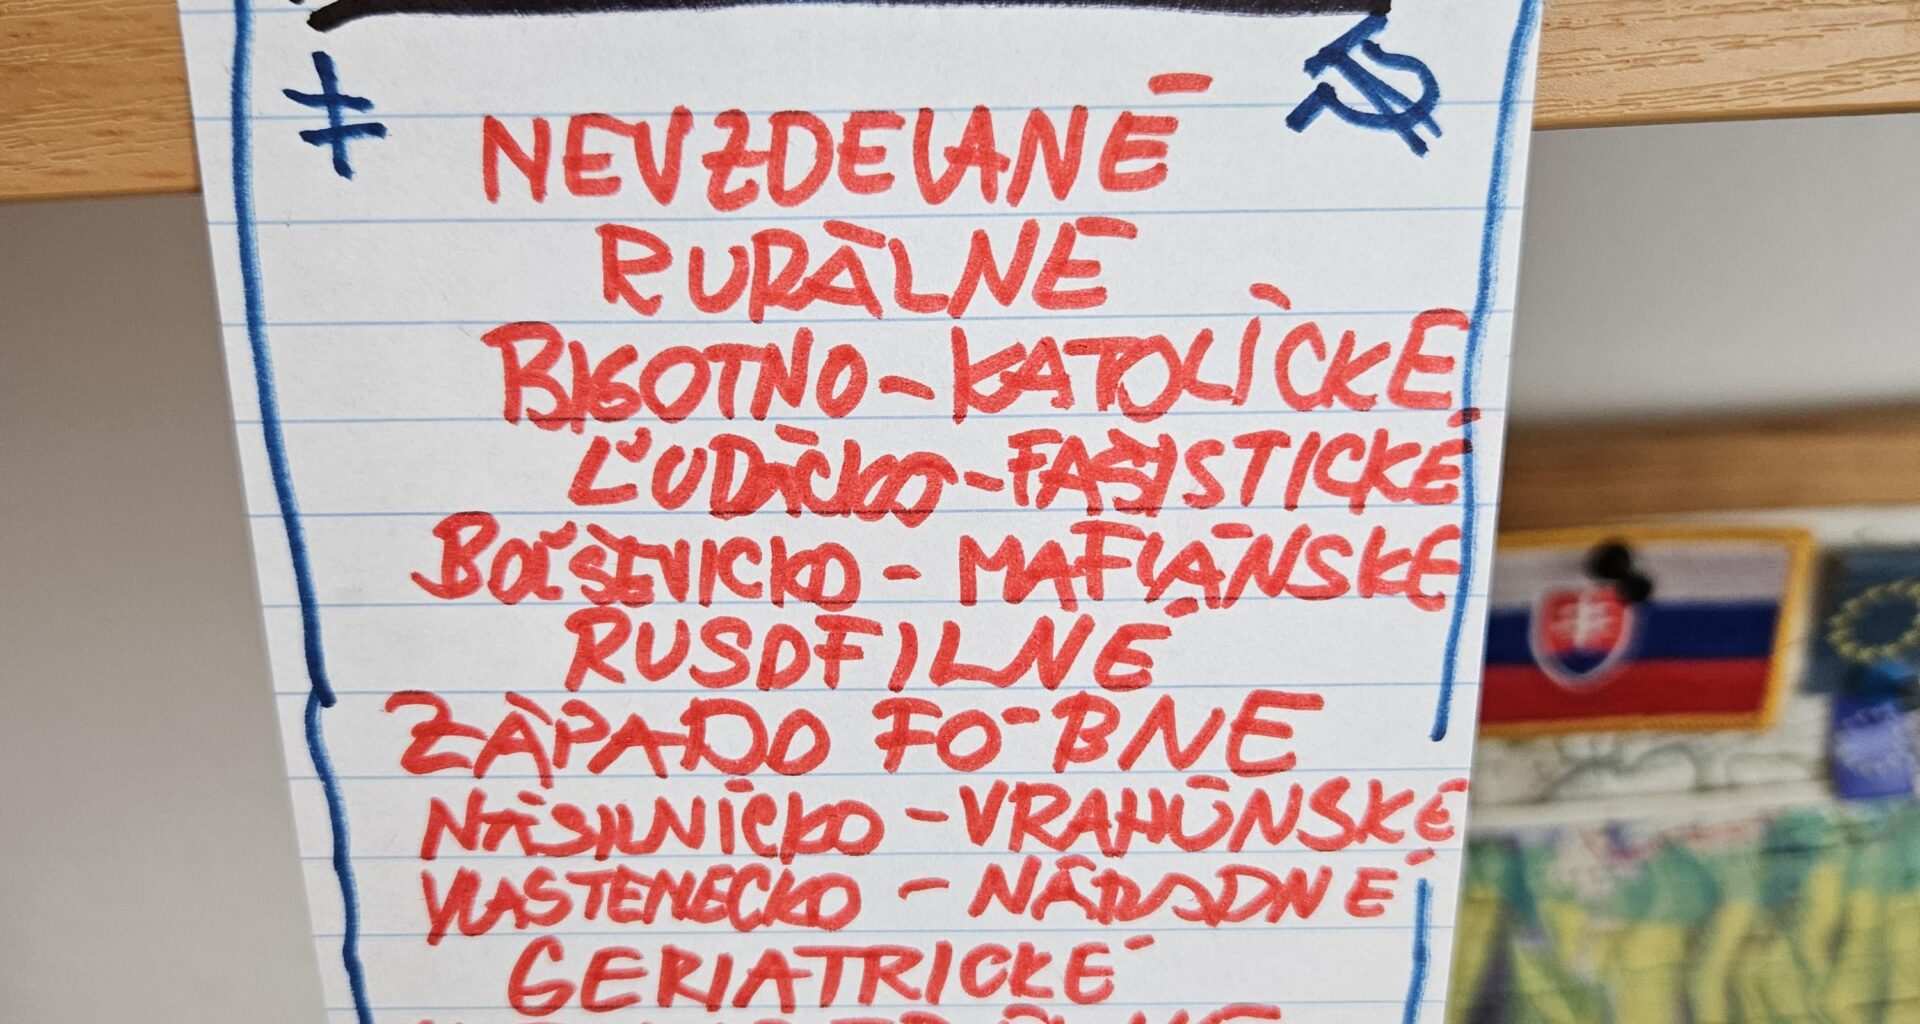 NEVZDELANÉ
RURÁLNE
BIGOTNO-KATOLÍCKE
ĽUDÁCKO-FAŠISTICKÉ
BOĽŠEVICKO-MAFIÁNSKE
RUSOFILNÉ
ZÁPADO FÓBNE
NÁSILNÍCKO-VRAHÚNSKE
VLASTENECKO-NÁRODNÉ
GERIATRICKÉ